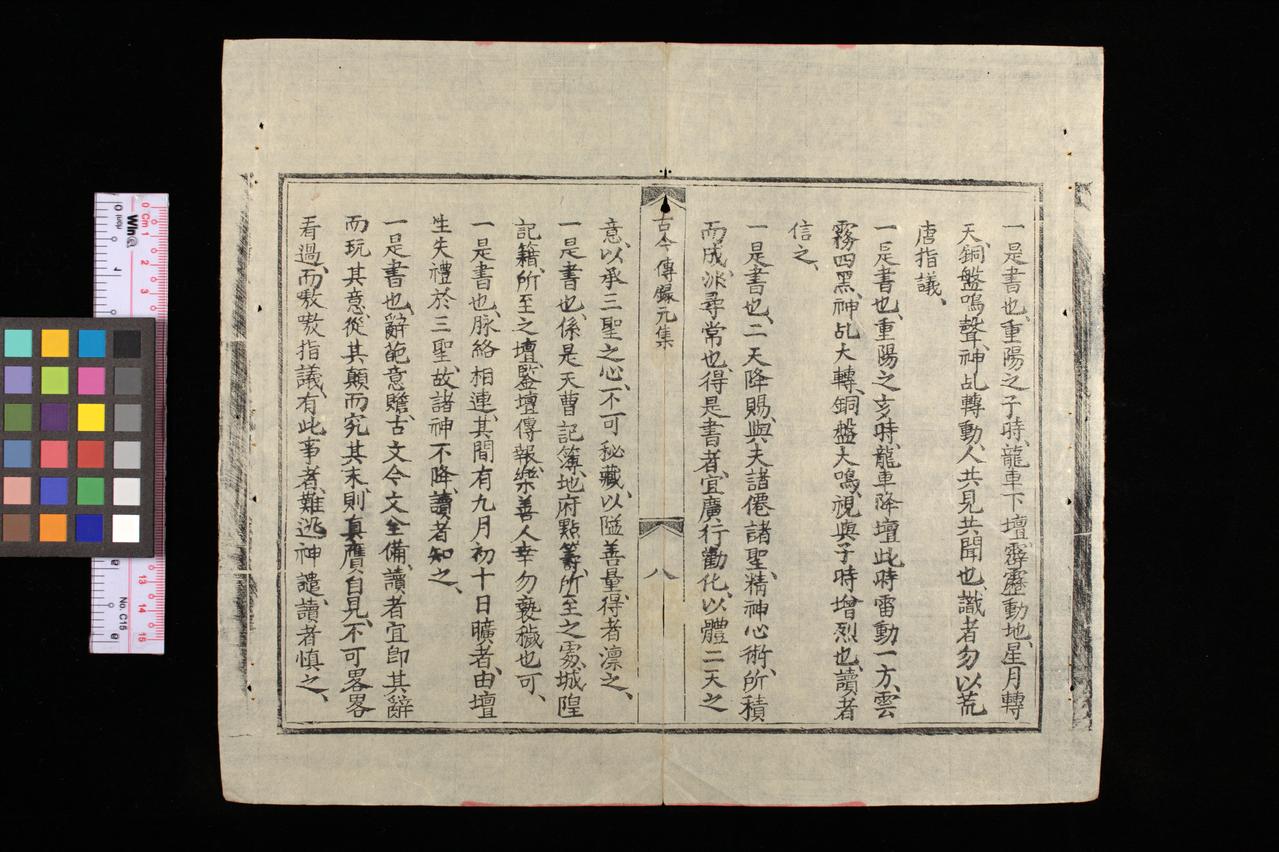 一是書也、重陽之子時、龍車下壇、霹靂動地、星月轉
天、銅盤鳴聲、神乩轉動、人共見共聞也、識者勿以荒
唐指議、
一是書也、重陽之亥時、龍車降壇、此時雷動一方、雲
霧四黑、神乩大轉、銅盤大鳴、視與子時增烈也、讀者
信之、
一是書也、二天降賜、與夫諸僊諸聖、精神心術、所積
而成、非尋常也、得是書者、宜廣行勸化、以體二天之
古今傳錄元集
八
意、以承三聖之心、不可秘藏、以隘善量、得者凛之、
一是書也、係是天曹記簿、地府點籌、所至之處、城隍
記籍、所至之壇、鑒壇傳報、樂善人幸勿褻穢也可、
一是書也、脉絡相連、其間有九月初十日曠者、由壇
生失禮於三聖、故諸神不降、讀者知之、
一是書也、辭葩意贍、古文今文全備、讀者宜卽其辭
而玩其意、從其顛而究其末、則真贋自見、不可畧畧
看過、而嗷嗷指議、有此事者、難逃神譴、讀者慎之、
Cm 1
2
3
13
14
15
No. C15